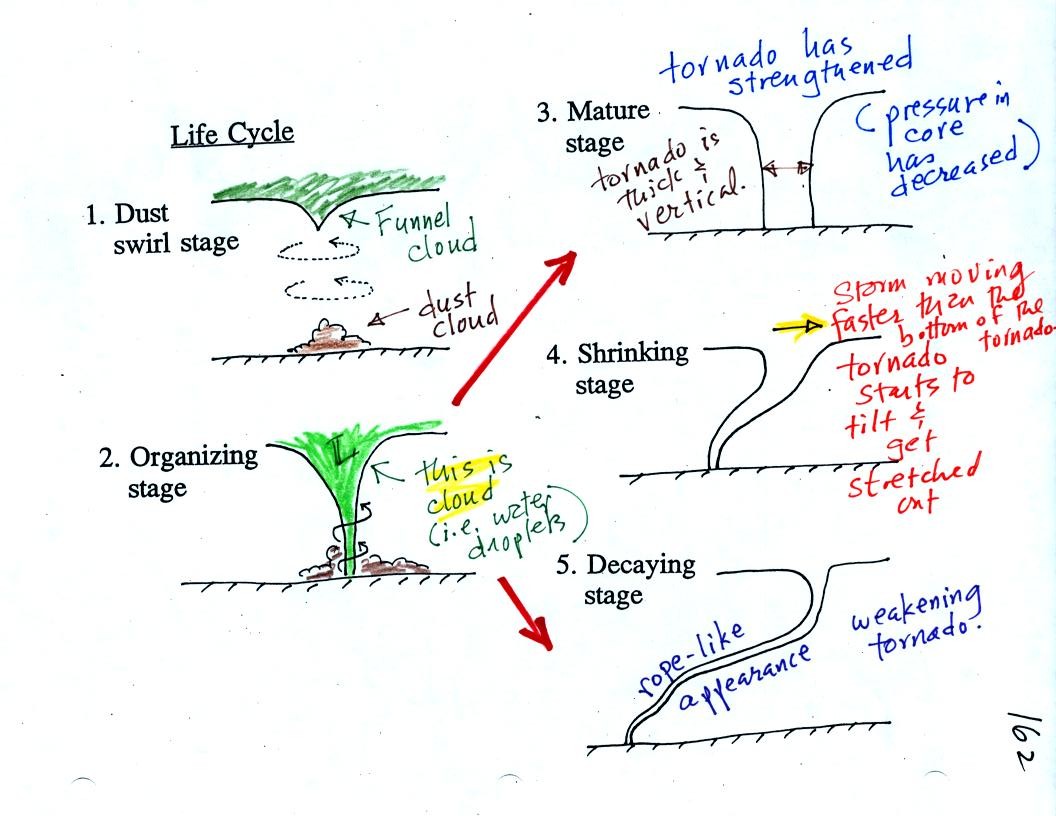 Life Cycle
1. Dust
swirl stage
Funnel
cloud
dust
cloud
2. Organizing
stage
L
this is
cloud
(i.e. water
droplets)
3. Mature
stage
tornado has
strengthened
(pressure in
core
has
decreased)
tornado is
thick &
vertical.
4. Shrinking
stage
Storm moving
faster than the
bottom of the
tornado
tornado
starts to
tilt &
get
stretched
out
5. Decaying
stage
rope-like
appearance
weakening
tornado.
162